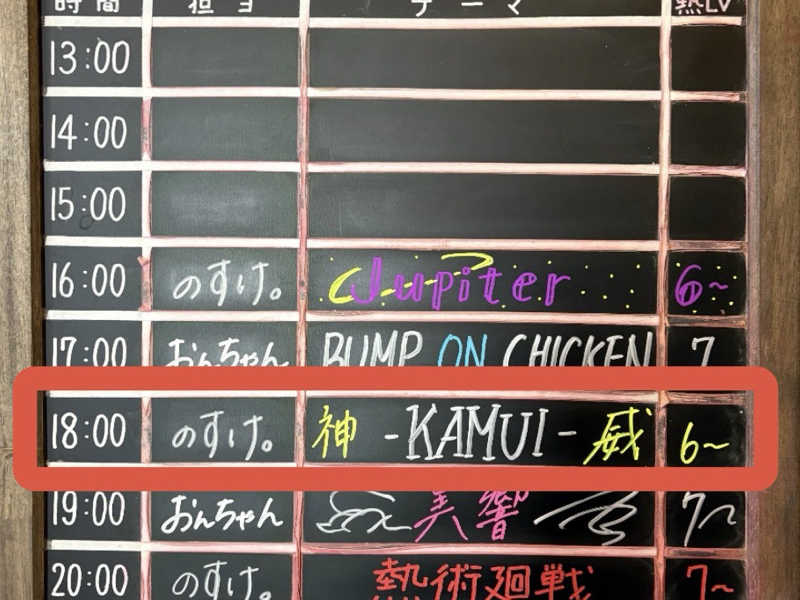 時間 担当 テーマ 熱LV
13:00
14:00
15:00
16:00 のすけ。 Jupiter 6~
17:00 おんちゃん BUMP ON CHICKEN 7
18:00 のすけ。 神 -KAMUI- 威 6~
19:00 おんちゃん 美響 7~
20:00 のすけ。 熱術廻戦 7~